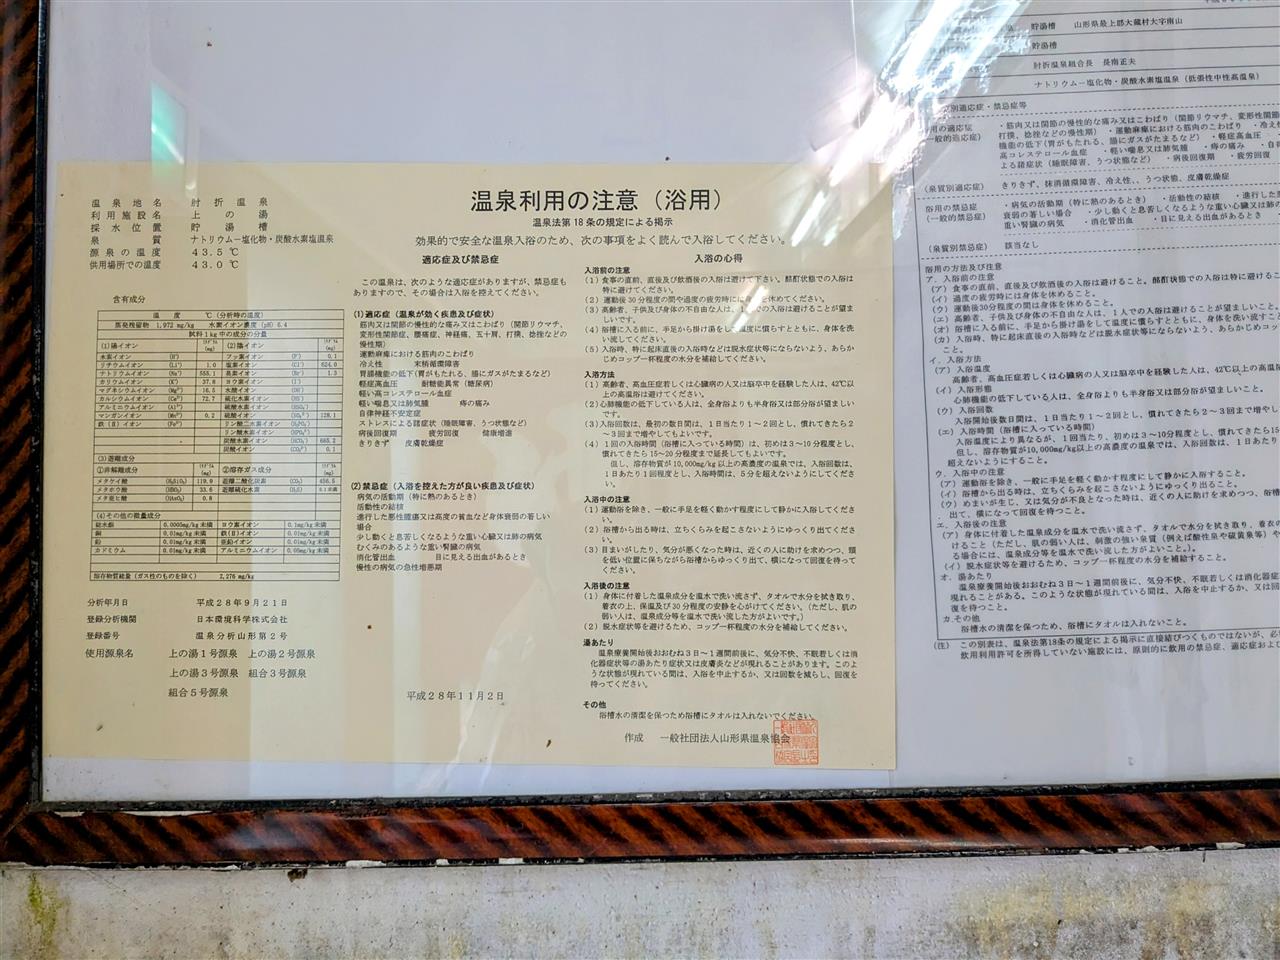 温泉地名　肘折温泉
利用施設名　上の湯
採水位置　貯湯槽
泉質　ナトリウムー塩化物・炭酸水素塩温泉
源泉の温度　43.5℃
供用場所での温度　43.0℃
含有成分
温度　℃（分析時の温度）
蒸発残留物　1,972 mg/kg　水素イオン濃度（pH）6.4
試料1kg中の成分の分量
(1)陽イオン　(2)陰イオン
水素イオン (H⁺)　フッ素イオン (F⁻) 0.1
リチウムイオン (Li⁺) 1.0　塩素イオン (Cl⁻) 624.0
ナトリウムイオン (Na⁺) 555.1　臭素イオン (Br⁻) 1.3
カリウムイオン (K⁺) 37.8　ヨウ素イオン (I⁻)
マグネシウムイオン 16.5　水酸イオン
カルシウムイオン 72.7　硫化水素イオン
アルミニウムイオン　硫酸水素イオン
マンガンイオン 0.2　硫酸イオン 128.1
鉄(Ⅱ)イオン　リン酸二水素イオン
リン酸水素イオン
炭酸水素イオン 685.2
炭酸イオン 0.1
(3)遊離成分
①非解離成分　②溶存ガス成分
メタケイ酸 119.9　遊離二酸化炭素 456.5
メタホウ酸 33.6　遊離硫化水素
メタ亜ヒ酸 0.8
(4)その他の微量成分
総水銀 0.0005mg/kg未満　ヨウ素イオン 0.1mg/kg未満
銅 0.01mg/kg未満　鉄(Ⅱ)イオン 0.01mg/kg未満
鉛 0.01mg/kg未満　亜鉛イオン 0.01mg/kg未満
カドミウム 0.01mg/kg未満　アルミニウムイオン 0.05mg/kg未満
溶存物質総量（ガス性のものを除く）　2,276 mg/kg
分析年月日　平成28年9月21日
登録分析機関　日本環境科学株式会社
登録番号　温泉分析山形第2号
使用源泉名　上の湯1号源泉　上の湯2号源泉
上の湯3号源泉　組合3号源泉
組合5号源泉
温泉利用の注意（浴用）
温泉法第18条の規定による掲示
効果的で安全な温泉入浴のため、次の事項をよく読んで入浴してください。
適応症及び禁忌症
この温泉は、次のような適応症がありますが、禁忌症も
ありますので、その場合は入浴を控えてください。
(1)適応症（温泉が効く疾患及び症状）
筋肉又は関節の慢性的な痛み又はこわばり（関節リウマチ、
変形性関節症、腰痛症、神経痛、五十肩、打撲、捻挫などの
慢性期）
運動麻痺における筋肉のこわばり
冷え性　末梢循環障害
胃腸機能の低下(胃がもたれる、腸にガスがたまるなど)
軽症高血圧　耐糖能異常（糖尿病）
軽い高コレステロール血症
軽い喘息又は肺気腫　痔の痛み
自律神経不安定症
ストレスによる諸症状（睡眠障害、うつ状態など）
病後回復期　疲労回復　健康増進
きりきず　皮膚乾燥症
(2)禁忌症（入浴を控えた方が良い疾患及び症状）
病気の活動期（特に熱のあるとき）
活動性の結核
進行した悪性腫瘍又は高度の貧血など身体衰弱の著しい
場合
少し動くと息苦しくなるような重い心臓又は肺の病気
むくみのあるような重い腎臓の病気
消化管出血　目に見える出血があるとき
慢性の病気の急性増悪期
平成28年11月2日
入浴の心得
入浴前の注意
(1) 食事の直前、直後及び飲酒後の入浴は避けて下さい。酩酊状態での入浴は
特に避けてください。
(2) 運動後30分程度の間や過度の疲労時には身体を休めてください。
(3) 高齢者、子供及び身体の不自由な人は、1人での入浴は避けることが望ま
しいです。
(4) 浴槽に入る前に、手足から掛け湯をして温度に慣らすとともに、身体を洗
い流してください。
(5) 入浴時、特に起床直後の入浴時などは脱水症状等にならないよう、あらか
じめコップ一杯程度の水分を補給してください。
入浴方法
(1) 高齢者、高血圧症若しくは心臓病の人又は脳卒中を経験した人は、42℃以
上の高温浴は避けてください。
(2)心肺機能の低下している人は、全身浴よりも半身浴又は部分浴が望ましい
です。
(3)入浴回数は、最初の数日間は、1日当たり1～2回とし、慣れてきたら2～
3回まで増やしてもよいです。
(4) 1回の入浴時間（浴槽に入っている時間）は、初めは3～10分程度とし、
慣れてきたら15～20分程度まで延長してもよいです。
但し、溶存物質が10,000mg/kg以上の高濃度の温泉では、入浴回数は、
1日あたり1回程度とし、入浴時間は、5分を超えないようにしてください。
入浴中の注意
(1) 運動浴を除き、一般に手足を軽く動かす程度にして静かに入浴してくださ
い。
(2) 浴槽から出る時は、立ちくらみを起こさないようにゆっくり出てくださ
い。
(3) 目まいがしたり、気分が悪くなった時は、近くの人に助けを求めつつ、頭
を低い位置に保ちながら浴槽からゆっくり出て、横になって回復を待ってくだ
さい。
入浴後の注意
(1) 身体に付着した温泉成分を温水で洗い流さず、タオルで水分を拭き取り、
着衣の上、保温及び30分程度の安静を心がけてください。（ただし、肌の
弱い人は、温泉成分等を温水で洗い流した方がよいです。）
(2) 脱水症状等を避けるため、コップ一杯程度の水分を補給してください。
湯あたり
温泉療養開始後おおむね3日～1週間前後に、気分不快、不眠若しくは消
化器症状等の湯あたり症状又は皮膚炎などが現れることがあります。このよ
うな状態が現れている間は、入浴を中止するか、又は回数を減らし、回復を
待ってください。
その他
浴槽水の清潔を保つため浴槽にタオルは入れないでください。
作成　一般社団法人山形県温泉協会
貯湯槽　山形県最上郡大蔵村大字南山
貯湯槽
肘折温泉組合長　長南正夫
ナトリウムー塩化物・炭酸水素塩温泉（低張性中性高温泉）
別適応症・禁忌症等
用の適応症
一般的適応症）
・筋肉又は関節の慢性的な痛み又はこわばり（関節リウマチ、変形性関節
打撲、捻挫などの慢性期）・運動麻痺における筋肉のこわばり　・冷え
機能の低下(胃がもたれる、腸にガスがたまるなど)　・軽症高血圧
高コレステロール血症　・軽い喘息又は肺気腫　・痔の痛み　・自
よる諸症状（睡眠障害、うつ状態など）　・病後回復期　・疲労回復
（泉質別適応症）　きりきず、抹消循環障害、冷え性、、うつ状態、皮膚乾燥症
浴用の禁忌症
（一般的禁忌症）
・病気の活動期（特に熱のあるとき）　・活動性の結核　・進行した悪
衰弱の著しい場合　・少し動くと息苦しくなるような重い心臓又は肺の
重い腎臓の病気　・消化管出血　・目に見える出血があるとき
（泉質別禁忌症）　該当なし
浴用の方法及び注意
ア．入浴前の注意
（ア）食事の直前、直後及び飲酒後の入浴は避けること。酩酊状態での入浴は特に避けるこ
（イ）過度の疲労時には身体を休めること。
（ウ）運動後30分程度の間は身体を休めること。
（エ）高齢者、子供及び身体の不自由な人は、1人での入浴は避けることが望ましいこと。
（オ）浴槽に入る前に、手足から掛け湯をして温度に慣らすとともに、身体を洗い流すこ
（カ）入浴時、特に起床直後の入浴時などは脱水症状等にならないよう、あらかじめコッ
こと。
イ．入浴方法
（ア）入浴温度
高齢者、高血圧症若しくは心臓病の人又は脳卒中を経験した人は、42℃以上の高温
（イ）入浴形態
心肺機能の低下している人は、全身浴よりも半身浴又は部分浴が望ましいこと。
（ウ）入浴回数
入浴開始後数日間は、1日当たり1～2回とし、慣れてきたら2～3回まで増やし
（エ）入浴時間（浴槽に入っている時間）
入浴温度により異なるが、1回当たり、初めは3～10分程度とし、慣れてきたら15～
但し、溶存物質が10,000mg/kg以上の高濃度の温泉では、入浴回数は、1日あたり
超えないようにすること。
ウ．入浴中の注意
（ア）運動浴を除き、一般に手足を軽く動かす程度にして静かに入浴すること。
（イ）浴槽から出る時は、立ちくらみを起こさないようにゆっくり出ること。
（ウ）めまいが生じ、又は気分が不良となった時は、近くの人に助けを求めつつ、浴槽
出て、横になって回復を待つこと。
エ．入浴後の注意
（ア）身体に付着した温泉成分を温水で洗い流さず、タオルで水分を拭き取り、着衣の
けること（ただし、肌の弱い人は、刺激の強い泉質（例えば酸性泉や硫黄泉等）や
る場合には、温泉成分等を温水で洗い流した方がよいこと。）。
（イ）脱水症状等を避けるため、コップ一杯程度の水分を補給すること。
オ．湯あたり
温泉療養開始後おおむね3日～1週間前後に、気分不快、不眠若しくは消化器症
現れることがある。このような状態が現れている間は、入浴を中止するか、又は回
復を待つこと。
カ.その他
浴槽水の清潔を保つため、浴槽にタオルは入れないこと。
（注）この別表は、温泉法第18条の規定による掲示に直接結びつくものではないが、必
飲用利用許可を所得していない施設には、原則的に飲用の禁忌症、適応症およ